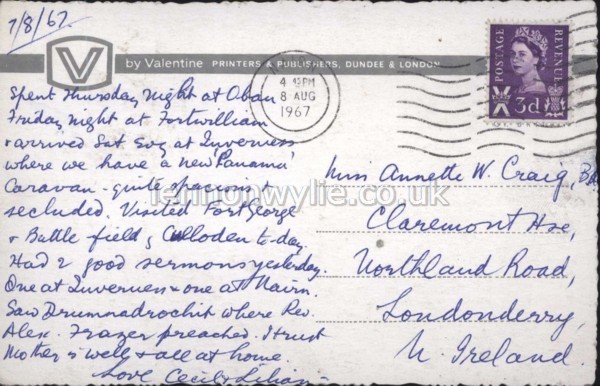 7/8/67
V by Valentine PRINTERS & PUBLISHERS, DUNDEE & LONDON
4 PM
8 AUG
1967
POSTAGE REVENUE
3d
Spent Thursday night at Oban
Friday night at Fortwilliam
& arrived Sat. Evg at Inverness
where we have a new 'Panama'
Caravan - quite spacious &
secluded. Visited Fort George
& Battle field of Culloden to-day.
Had 2 good sermons yesterday.
One at Inverness & one at Nairn.
Saw Drumnadrochit where Rev.
Alex. Frazer preached. I trust
Mother is well & all at home.
Love Cecil & Lilian
Miss Annette W. Craig,
Claremont Hse,
Northland Road,
Londonderry,
N. Ireland
lennonwylie.co.uk